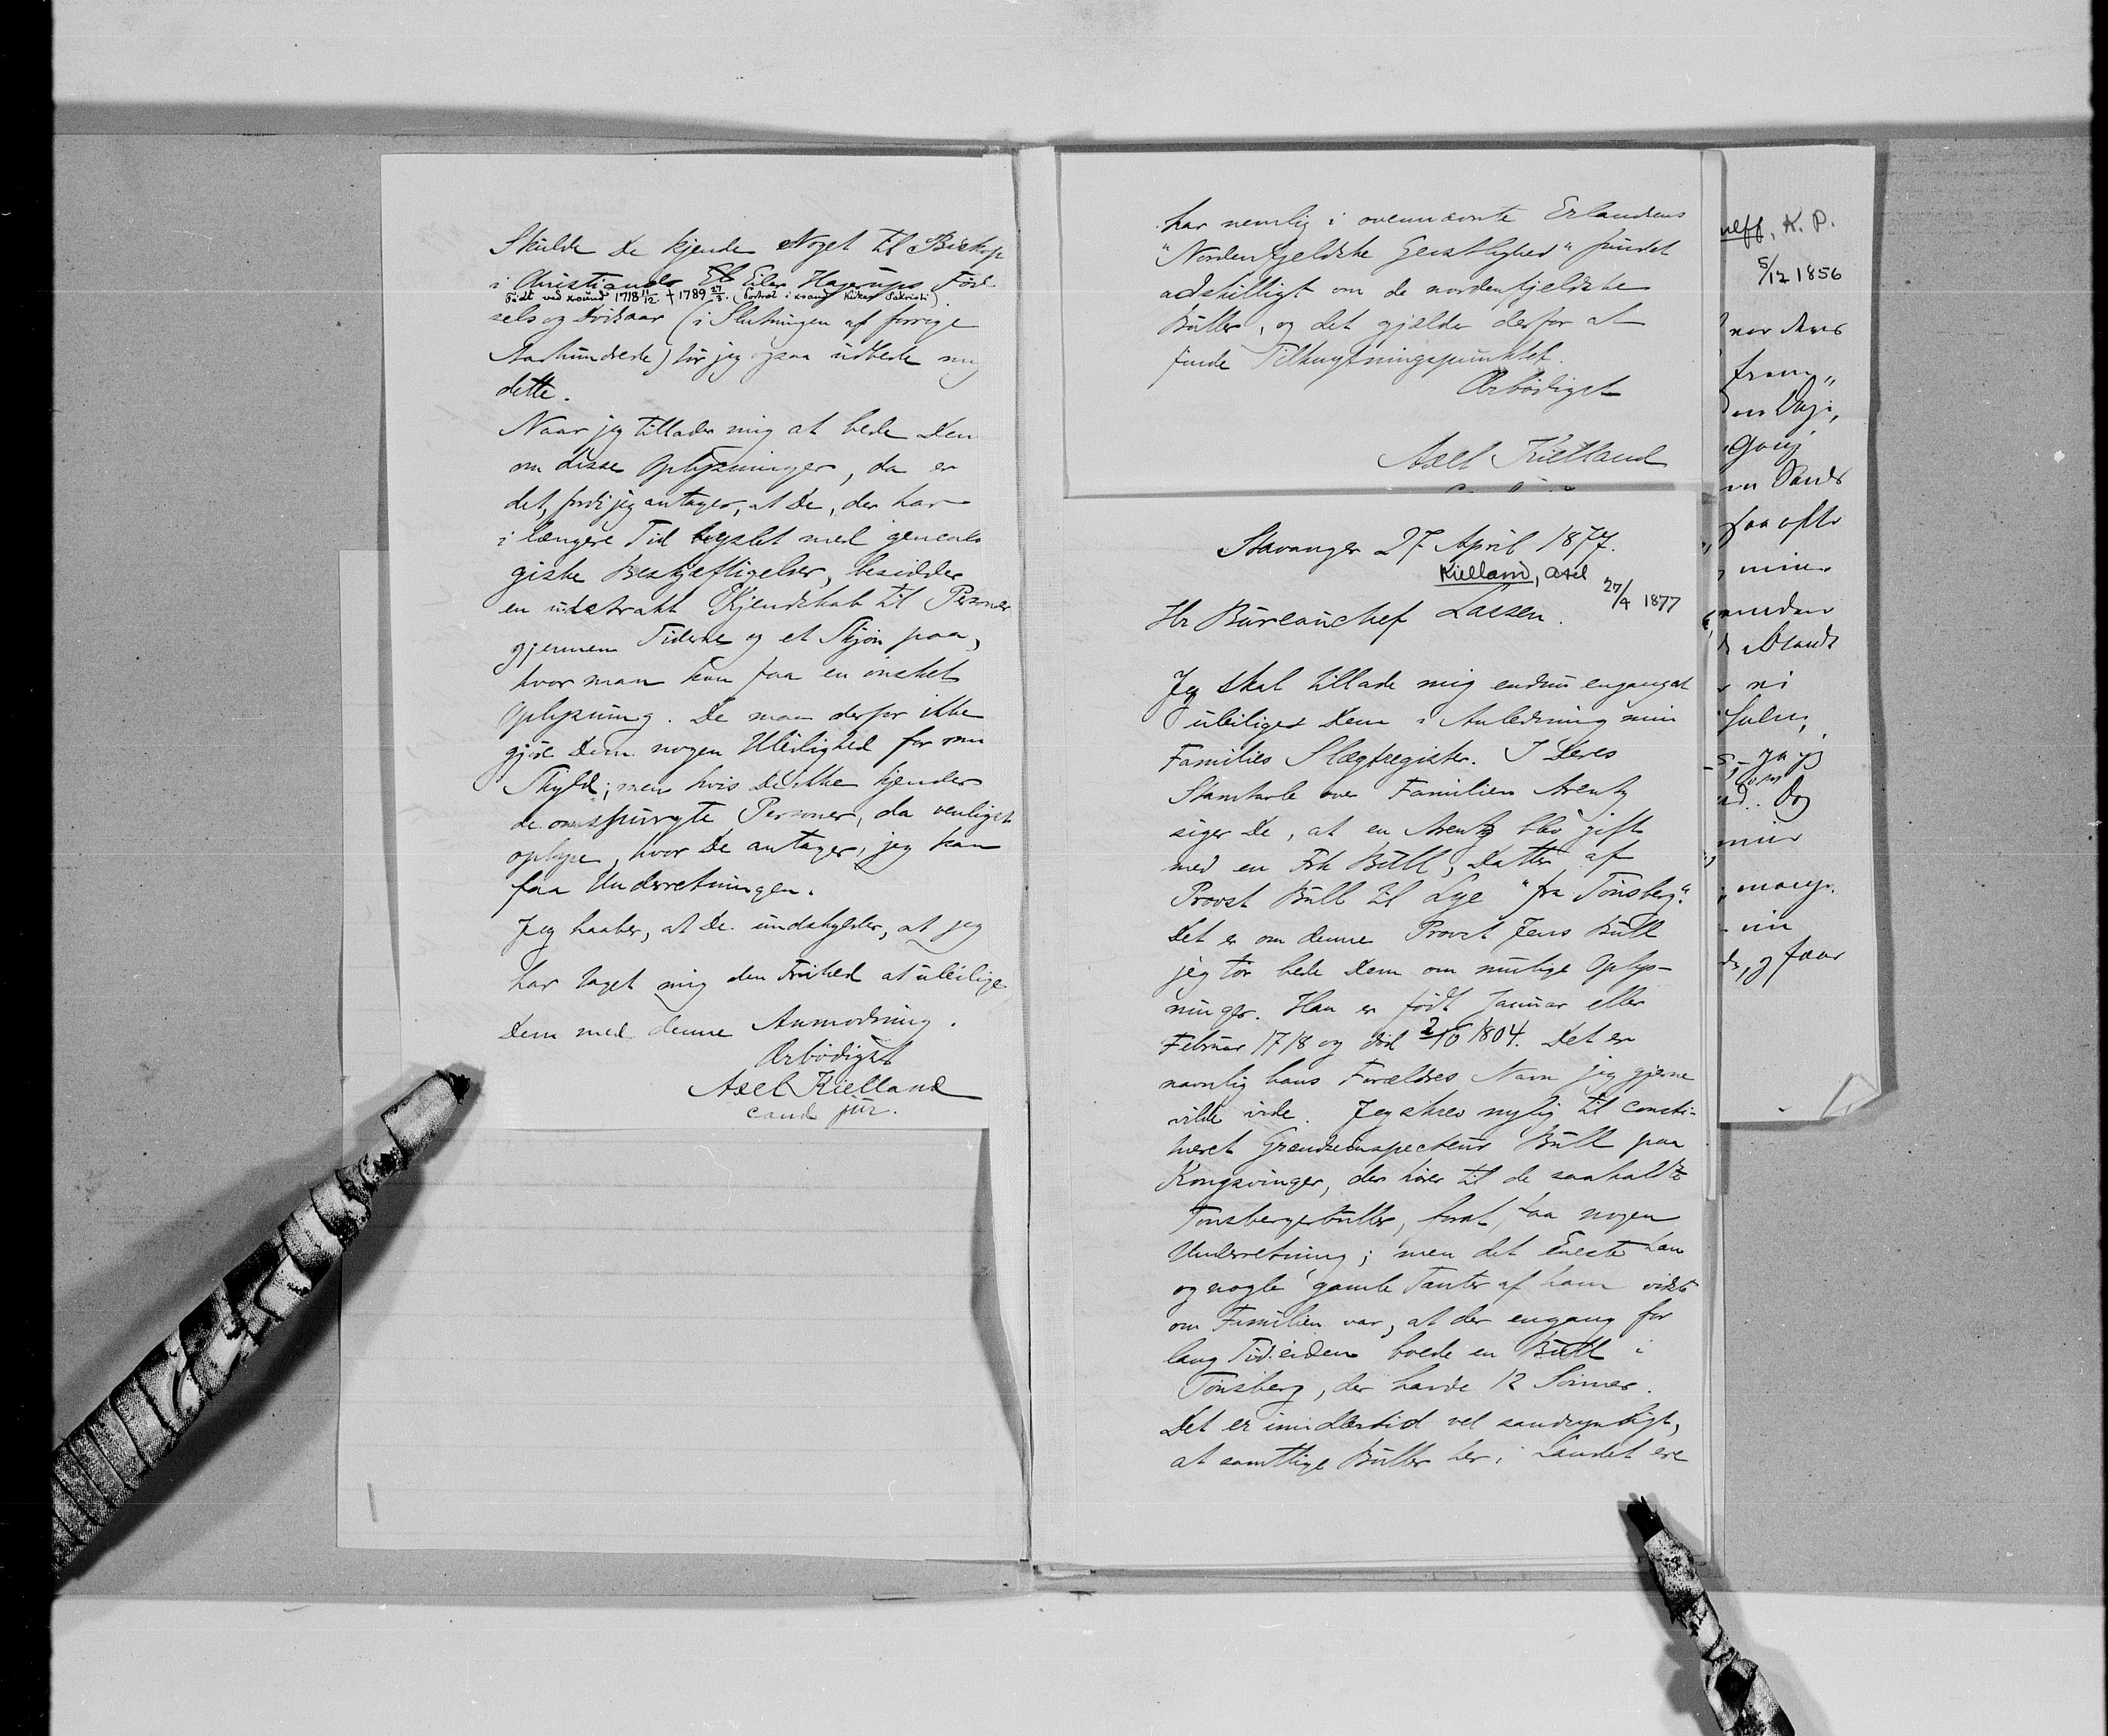 Skulde De kjende Noget til Biskop
i Christiands Eb Eiler Hagerups Föd-
Födt ved xsund 1718 11/12 † 1789 27/3. (Portræt i xsand Kirkes Sakristi)
sels og Dödsaar (i Slutningen af forrige
Aarhundrede) tör jeg ogsaa udbede mig
dette.
Naar jeg tillader mig at bede Dem
om disse Oplysninger, da er
det, fordi jeg antager, at De, der har
i længere Tid syslet med genealo
giske Beskjæftigelser, besidder
en udstrakt Kjendskab til Personer
gjennem Tiderne og et Skjön paa,
hvor man kan faa en önsket
Oplysning. De maa derfor ikke
gjöre Dem nogen Uleilighed for min
Skyld; men hvis De ikke kjender
de omspurgte Personer, da venligst
oplyse, hvor De antager, jeg kan
faa Underretningen.
Jeg haaber, at De undskylder, at jeg
har taget mig den Frihed at uleilige
Dem med denne Anmodning.
Ærbödigst
Axel Kielland
cand jur.
har nemlig i ovennævnte Erlandsens
"Nordenfjeldske Geistlighed" fundet
adskilligt om de nordenfjeldske
Buller, og det gjælder derfor at
finde Tilknytningspunktet.
Ærbödigst
Axel Kielland
Stavanger 27 April 1877.
Kielland, Axel
27/4 1877
Hr Bureauchef Lassen.
Jeg skal tillade mig endnu engang at
uleilige Dem i Anledning min
Families Slægtregister. I Deres
Stamtavle over Familien Arentz
siger De, at en Arentz blev gift
med en Frk Bull, Datter af
Provst Bull til Lye "fra Tönsberg".
Det er om denne Provst Jens Bull
jeg tör bede Dem om mulige Oplys-
ninger. Han er födt Januar eller
Februar 1718 og död 2/10 1804. Det er
navnlig hans Forældres Navn jeg gjerne
vilde vide. Jeg skrev nylig til consti-
tueret Grændseinspecteur Bull paa
Kongsvinger, der hörer til de saakaldte
Tönsbergerbuller, forat faa nogen
Underretning; men det Eneste han
og nogle gamle Tanter af ham vidste
om Familien var, at der engang for
lang Tid siden boede en Bull i
Tönsberg, der havde 12 Sönner.
Det er imidlertid vel sandsynligt,
at samtlige Buller her i Landet ere
K. P.
5/12 1856